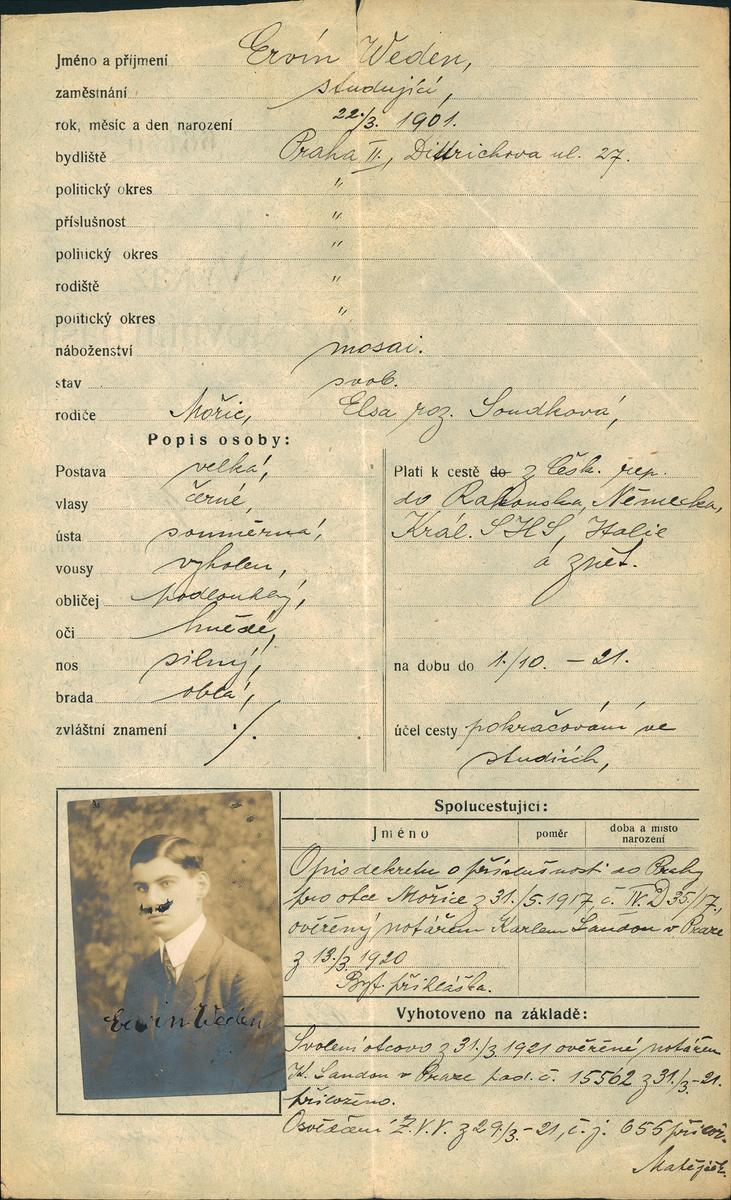 Jméno a příjmení Ervín Weden,
zaměstnání studující,
rok, měsíc a den narození 22./3. 1901.
bydliště Praha II., Dittrichova ul. 27.
politický okres "
příslušnost "
politický okres "
rodiště "
politický okres "
náboženství mosai.
stav svob.
rodiče Mořic, Elsa roz. Soudková,
Popis osoby:
Postava velká,
vlasy černé,
ústa souměrná,
vousy vyholen,
obličej podlouhlý,
oči hnědé,
nos silný,
brada oblá,
zvláštní znamení ·/.
Platí k cestě do z Česk. rep.
do Rakouska, Německa,
Král. SHS, Italie
a zpět.
na dobu do 1./10. – 21.
účel cesty pokračování ve
studiích,
Ervin Weden
Spolucestující:
Jméno poměr doba a místo narození
Opis dekretu o příslušnosti do Prahy
pro otce Mořice z 31./5. 1917, č. IV. D 35/17,
ověřený notářem Karlem Landou v Praze
z 13./3. 1920
Byt. přihláška.
Vyhotoveno na základě:
Svolení otcovo z 31./3. 1921 ověřené notářem
K. Landou v Praze pod. č. 15562 z 31./3. – 21.
přiloženo.
Osvědčení Z.V.V. z 29/3. – 21, č. j. 655 přilož.
Matějček